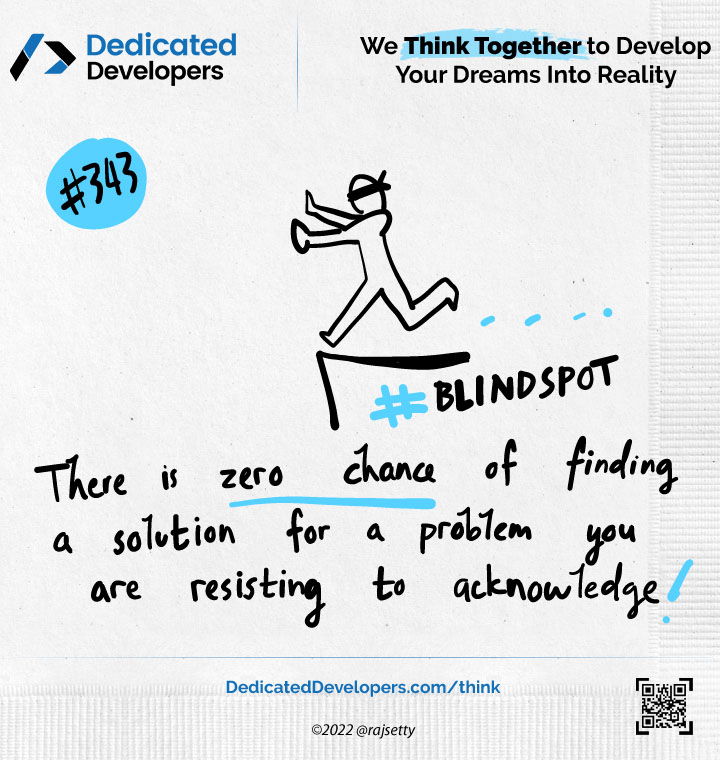 Dedicated
Developers
We Think Together to Develop
Your Dreams Into Reality
#343
#BLINDSPOT
There is zero chance of finding
a solution for a problem you
are resisting to acknowledge!
DedicatedDevelopers.com/think
©2022 @rajsetty